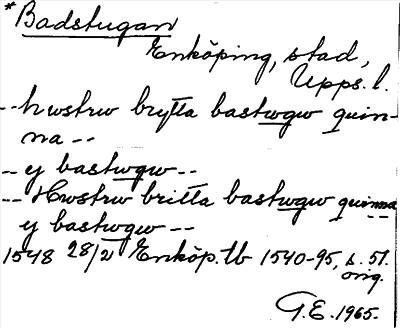 *Badstugan
Enköping, stad,
Upps. l.
-- hwstrw brytta bastwgw quin-
na --
-- y bastwgw --
-- Hwstrw britta bastwgw quinna
y bastwgw --
1548 28/2 Enköp. tb 1540-95, s. 51.
orig.
G.E. 1965.